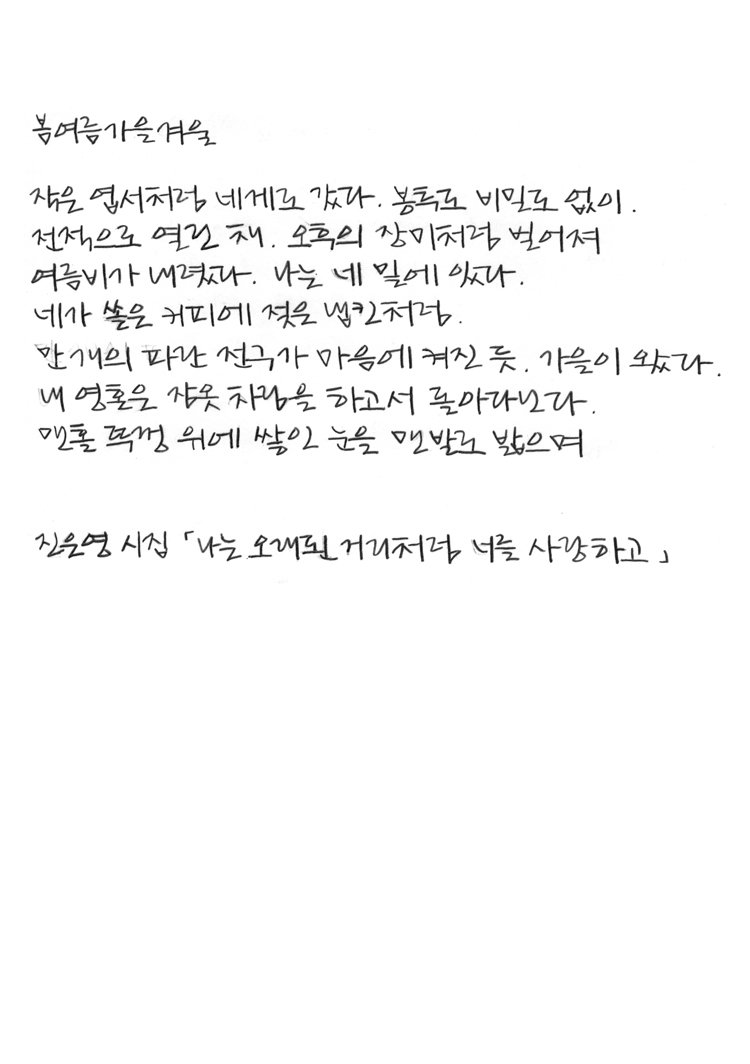 봄여름가을겨울
작은 엽서처럼 네게로 갔다. 봉투도 비밀도 없이.
전적으로 열린 채. 오후의 장미처럼 벌어져
여름비가 내렸다. 나는 네 밑에 있다.
네가 쏟은 커피에 젖은 냅킨처럼.
만 개의 파란 전구가 마음에 켜진 듯. 가을이 왔다.
내 영혼은 잠옷 차림을 하고서 돌아다닌다.
맨홀 뚜껑 위에 쌓인 눈을 맨발로 밟으며
진은영 시집 「나는 오래된 거리처럼 너를 사랑하고」